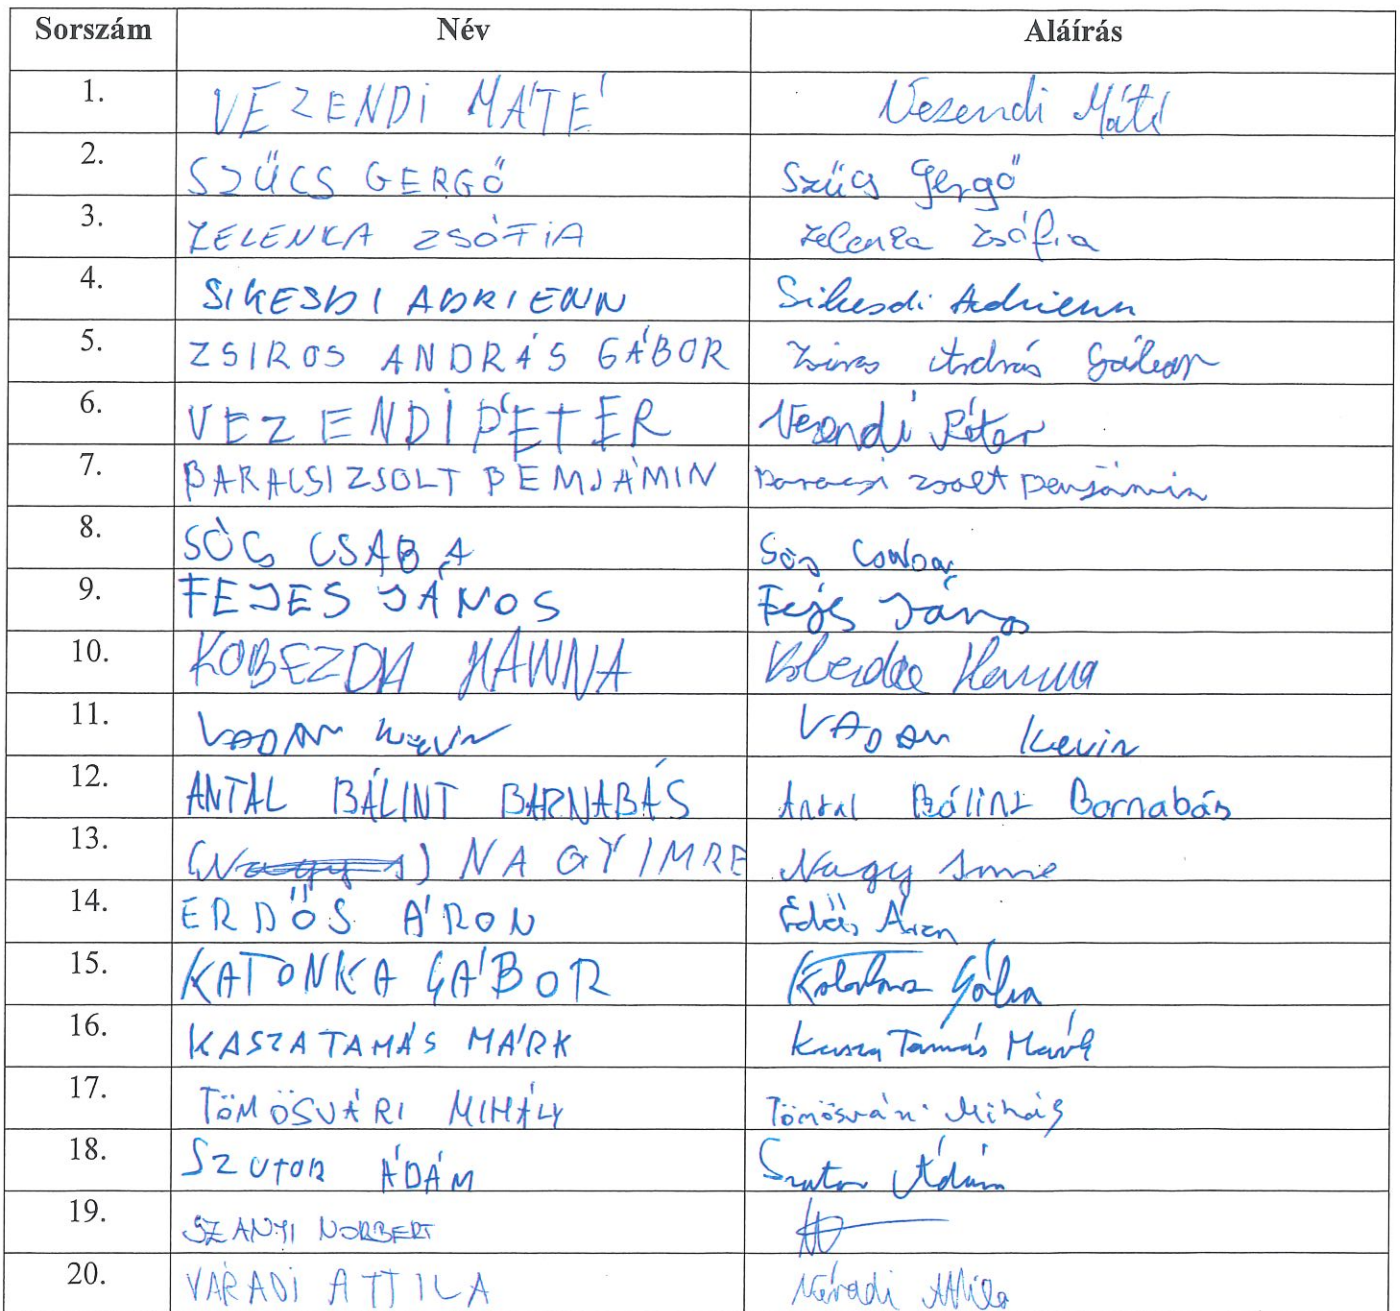 Sorszám Név Aláírás
1. VEZENDI MÁTÉ Vezendi Máté
2. SZŰCS GERGŐ Szűcs Gergő
3. ZELENKA ZSÓFIA Zelenka Zsófia
4. SIKESDI ADRIENN Sikesdi Adrienn
5. ZSIROS ANDRÁS GÁBOR Zsiros András Gábor
6. VEZENDI PÉTER Vezendi Péter
7. BARACSI ZSOLT BEMJÁMIN Baracsi Zsolt Benjámin
8. SÓG CSABA Sóg Csaba
9. FEJES JÁNOS Fejes János
10. KOBEZDA HANNA Kobezda Hanna
11. VADAN KEVIN VADAN Kevin
12. ANTAL BÁLINT BARNABÁS Antal Bálint Barnabás
13. NAGY IMRE Nagy Imre
14. ERDŐS ÁRON Erdős Áron
15. KATONKA GÁBOR Katonka Gábor
16. KASZA TAMÁS MÁRK Kasza Tamás Márk
17. TÖMÖSVÁRI MIHÁLY Tömösvári Mihály
18. SZUTOR ÁDÁM Szutor Ádám
19. SZANYI NORBERT
20. VÁRADI ATTILA Váradi Attila